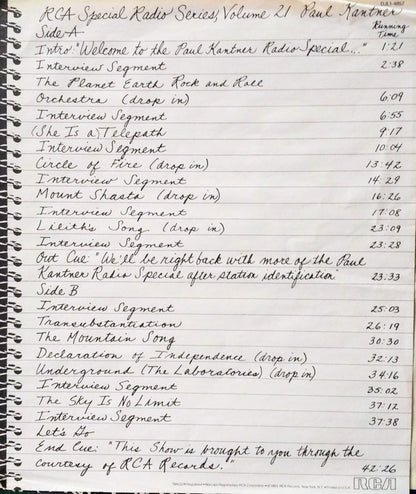 DJL1-4867
RCA Special Radio Series, Volume 21 Paul Kantner
Running
Time
Side A
Intro: "Welcome to the Paul Kantner Radio Special..." 1:21
Interview Segment 2:38
The Planet Earth Rock and Roll
Orchestra (drop in) 6:09
Interview Segment 6:55
(She Is a) Telepath 9:17
Interview Segment 10:04
Circle of Fire (drop in) 13:42
Interview Segment 14:29
Mount Shasta (drop in) 16:26
Interview Segment 17:08
Lilith's Song (drop in) 23:09
Interview Segment 23:28
Out Cue: "We'll be right back with more of the Paul
Kantner Radio Special after station identification" 23:33
Side B
Interview Segment 25:03
Transubstantiation 26:19
The Mountain Song 30:30
Declaration of Independence (drop in) 32:13
Underground (The Laboratories) (drop in) 34:16
Interview Segment 35:02
The Sky Is No Limit 37:12
Interview Segment 37:38
Let's Go
End Cue: "This Show is brought to you through the
courtesy of RCA Records." 42:26
RCA